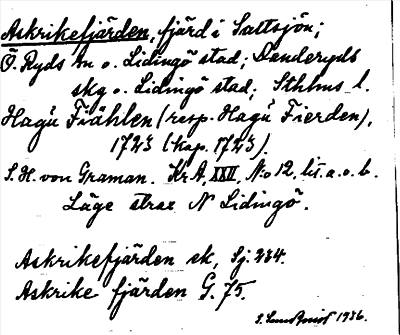 Askrikefjärden, fjärd i Saltsjön;
Ö. Ryds sn o. Lidingö stad; Danderyds
skg o. Lidingö stad; Sthlms l.
Hagú Fiählen (resp. Hagú Fierden),
1723 (kop. 1723).
S. H. von Graman. Kr. A, XXII, N:o 12, lit. a. o. b.
Läge strax N Lidingö.
Askrikefjärden sk, Sj. 234.
Askrike fjärden G. 75.
1936.